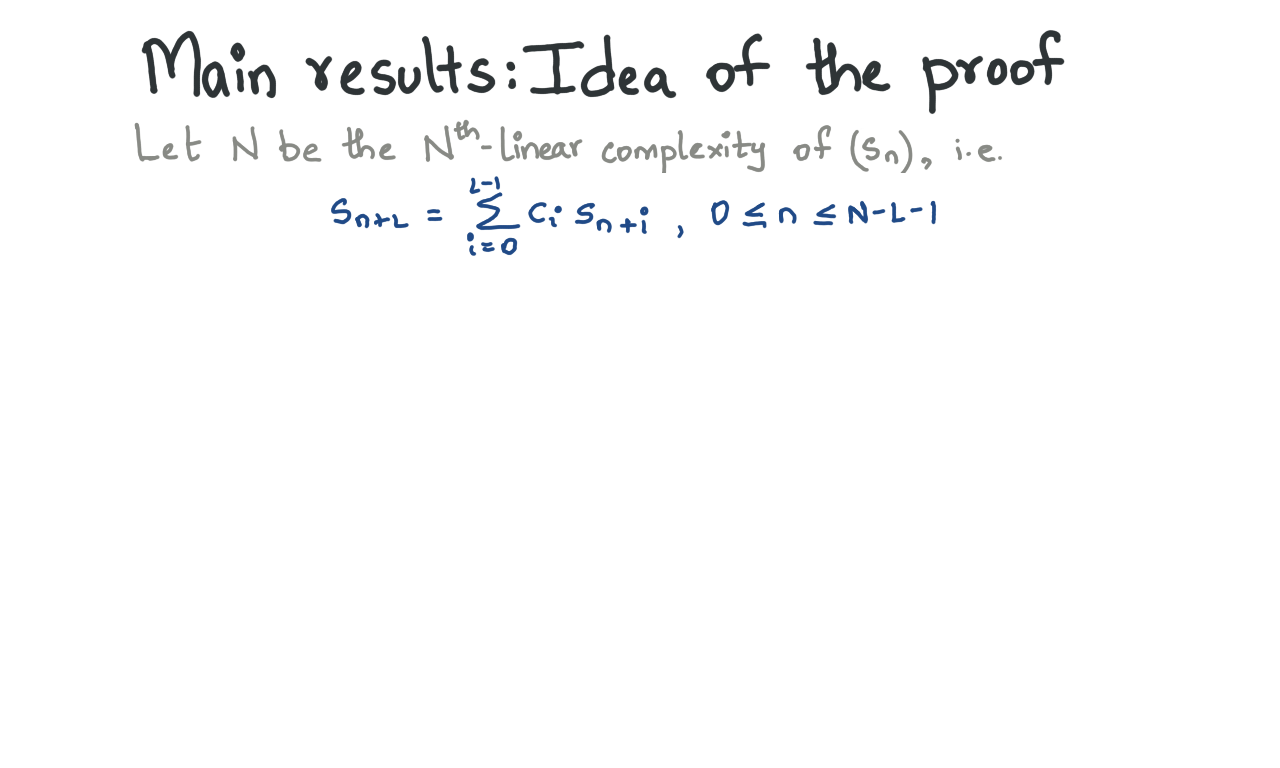 Main results: Idea of the proof
Let N be the Nᵗʰ-linear complexity of (sₙ), i.e.
Sₙ₊L = ∑_{i=0}^{L-1} Cᵢ Sₙ₊ᵢ , 0 ≤ n ≤ N-L-1